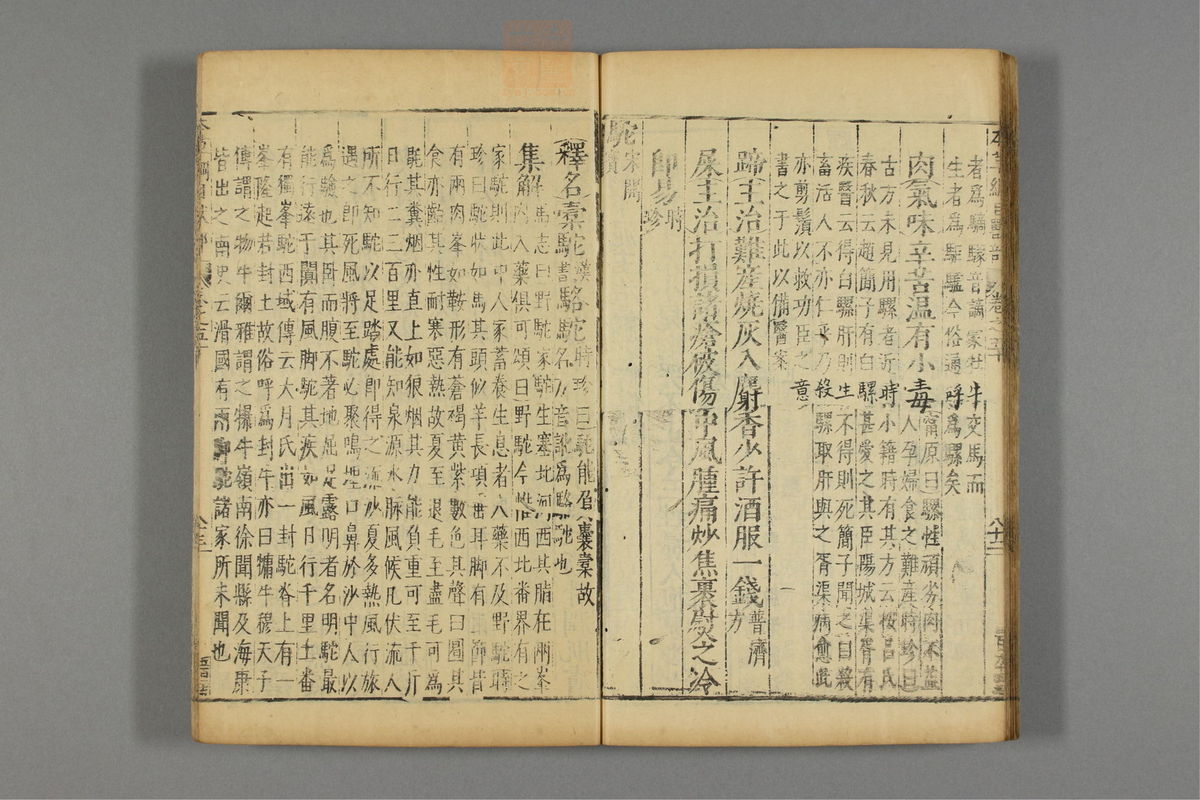 者爲驕騾音謫家牡牛交馬而
生者爲驅驢今俗通呼爲騾矣
肉氣味辛苦温有小毒甯原曰騾性頑劣肉不益
人孕婦食之難産時珍曰
古方未見用騾者近時小籍時有其方云按呂氏
春秋云趙簡子有白騾甚愛之其臣陽城渠胥有
疾醫云得白騾肝則生不得則死簡子聞之曰殺
畜活人不亦仁乎乃殺騾取肝與之胥渠病愈此
亦剪鬚以救功臣之意
書之于此以備醫案
蹄主治難産燒灰入麝香少許酒服一錢普濟方
屎主治打損諸瘡破傷中風腫痛炒焦裹熨之冷
卽易時珍
駝宋開寶
釋名橐駝漢書駱駝時珍曰駝能負囊橐故
名方音訛爲駱駝也
集解馬志曰野駝家駝生塞北河西其脂在兩峯
内入藥俱可頌曰野駝今惟西北番界有之
家駝則此中人家蓄養生息者入藥不及野駝時
珍曰駝狀如馬其頭似羊長項垂耳脚有三節背
有兩肉峯如鞍形有蒼褐黄紫數色其聲曰圔其
食亦齝其性耐寒惡熱故夏至退毛至盡毛可爲
毼其糞烟亦直上如狼烟其力能負重可至千斤
日行二三百里又能知泉源水脉風候凡伏流人
所不知駝以足踏處即得之流沙夏多熱風行旅
遇之即死風將至駝必聚鳴埋口鼻於沙中人以
爲驗也其臥而腹不著地屈足露明者名明駝最
能行遠于闐有風脚駝其疾如風日行千里土番
有獨峯駝西域傳云大月氏出一封駝脊上有一
峯隆起若封土故俗呼爲封牛亦曰犦牛穆天子
傳謂之牥牛爾雅謂之犦牛嶺南徐聞縣及海康
皆出之南史云滑國有兩脚駝諸家所未聞也